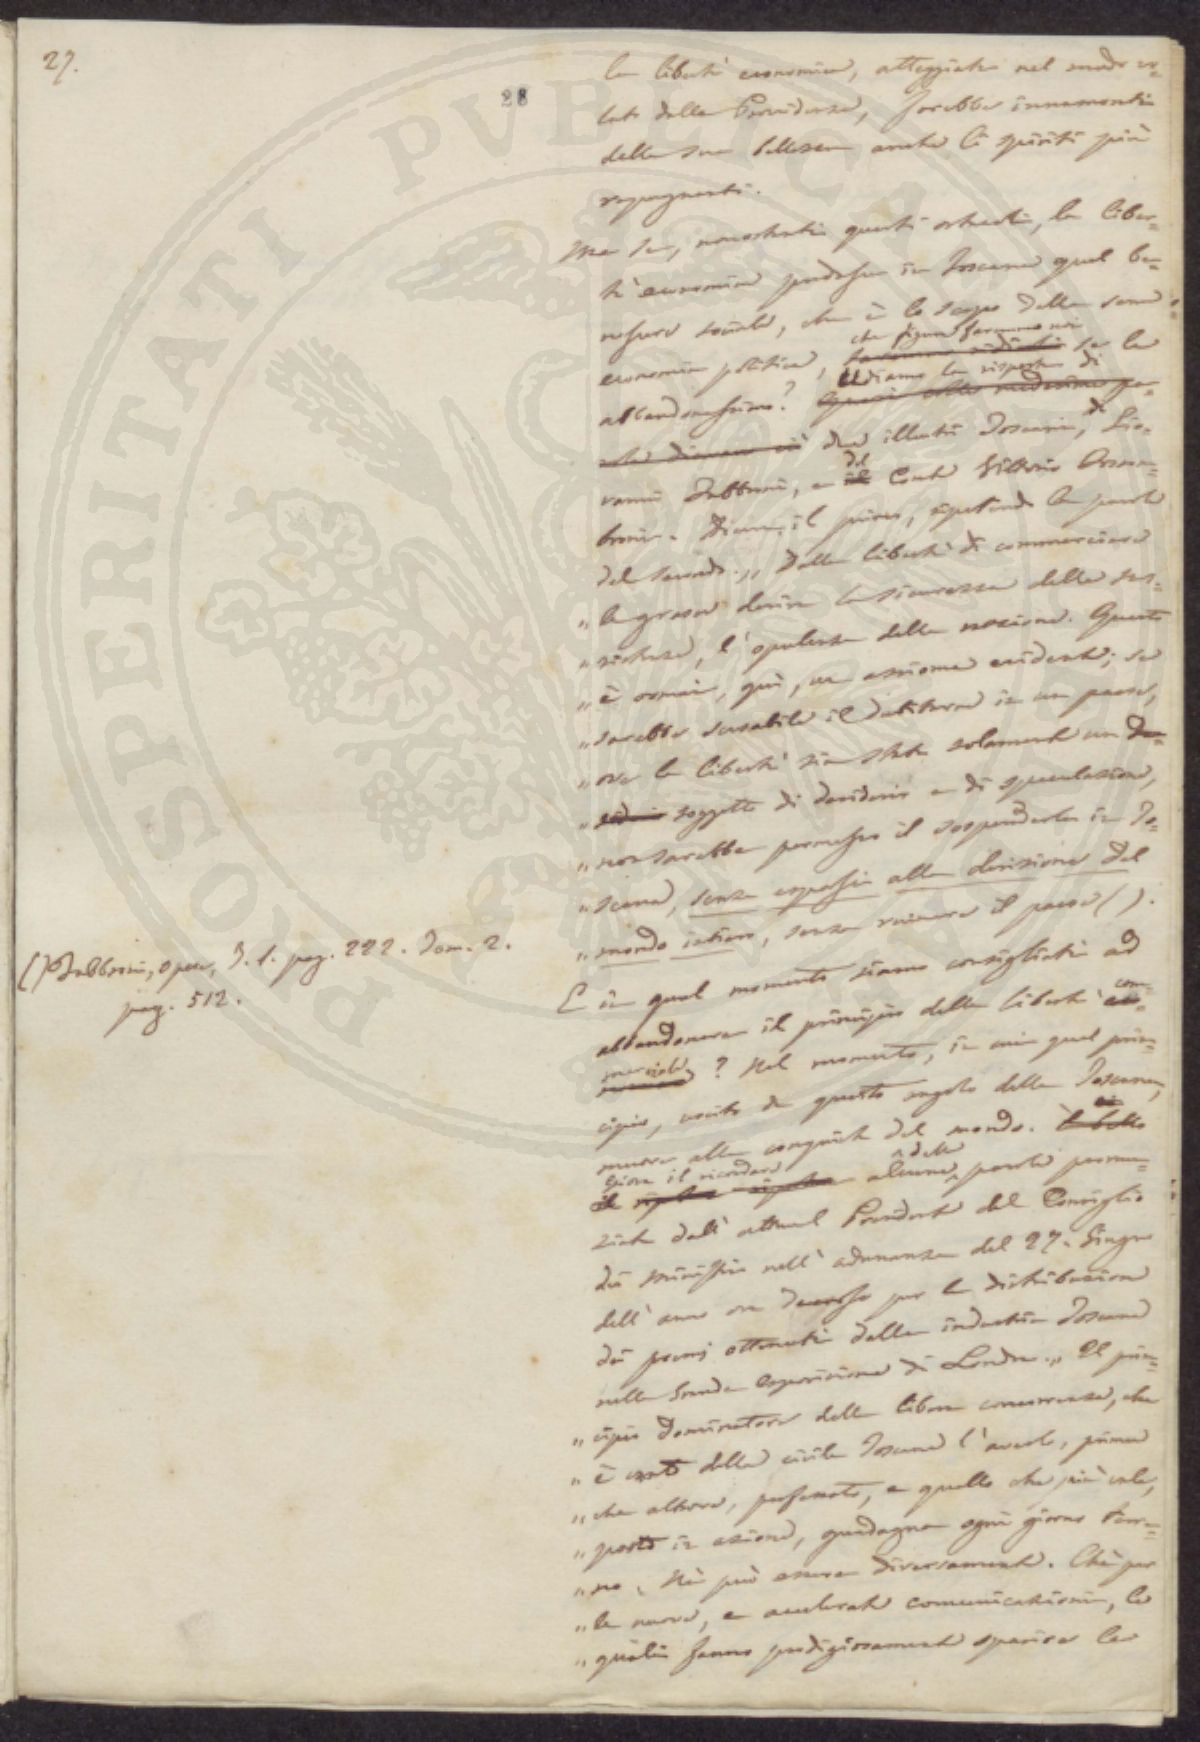 27.
28
la libertà economica, atteggiata nel modo vo-
luto dalla Provvidenza, farebbe innamorati
della sua bellezza anche li spiriti più
repugnanti.
Ma se, nonostanti questi ostacoli, la liber-
tà economica produsse in Toscana quel be-
nessere sociale, che è lo scopo della sana
che figura faremmo noi
economia politica, se la
Udiamo la risposta di
abbandonassimo?
due illustri Toscani, di Gio-
del
vanni Fabbroni, e il Conte Vittorio Fossom-
broni. Diceva il primo, ripetendo le parole
del secondo: „ Dalla libertà di commerciare
„ le grasce deriva la sicurezza della sus-
„ sistenza, l'opulenza della nazione. Questo
„ è ormai, quì, un assioma evidente; se
„ sarebbe scusabile il dubitarne in un paese,
„ ove la libertà sia stata solamente un de-
„ siderio soggetto di desiderio e di speculazione,
„ non sarebbe permesso il sospenderla in To-
„ scana, senza esporsi alla derisione del
„ mondo intiero, senza rovinare il paese ( ).
() Fabbroni, opere, T. 1. pag. 222. Tom. 2.
pag. 512.
E in qual momento siamo consigliati ad
abbandonare il principio della libertà com-
merciale? Nel momento, in cui quel prin-
cipio, uscito da questo angolo della Toscana,
muove alla conquista del mondo. È bello
Giova il ricordare
alcune delle parole pronun-
ziate dall'attual Presidente del Consiglio
dei Ministri nell'adunanza del 27. Giugno
dell'anno ora decorso per la distribuzione
dei premj ottenuti dalla industria Toscana
nella Grande Esposizione di Londra. „ Il prin-
„ cipio dominatore della libera concorrenza, che
„ è vanto della civile Toscana l'averlo, prima
„ che altrove, professato, e quello che più vale,
„ posto in azione, guadagna ogni giorno terre-
„ no. Nè può essere diversamente. Chè per
„ le nuove, e accelerate comunicazioni, le
„ quali fanno prodigiosamente sparire le
PROSPERITATI PUBLICAE